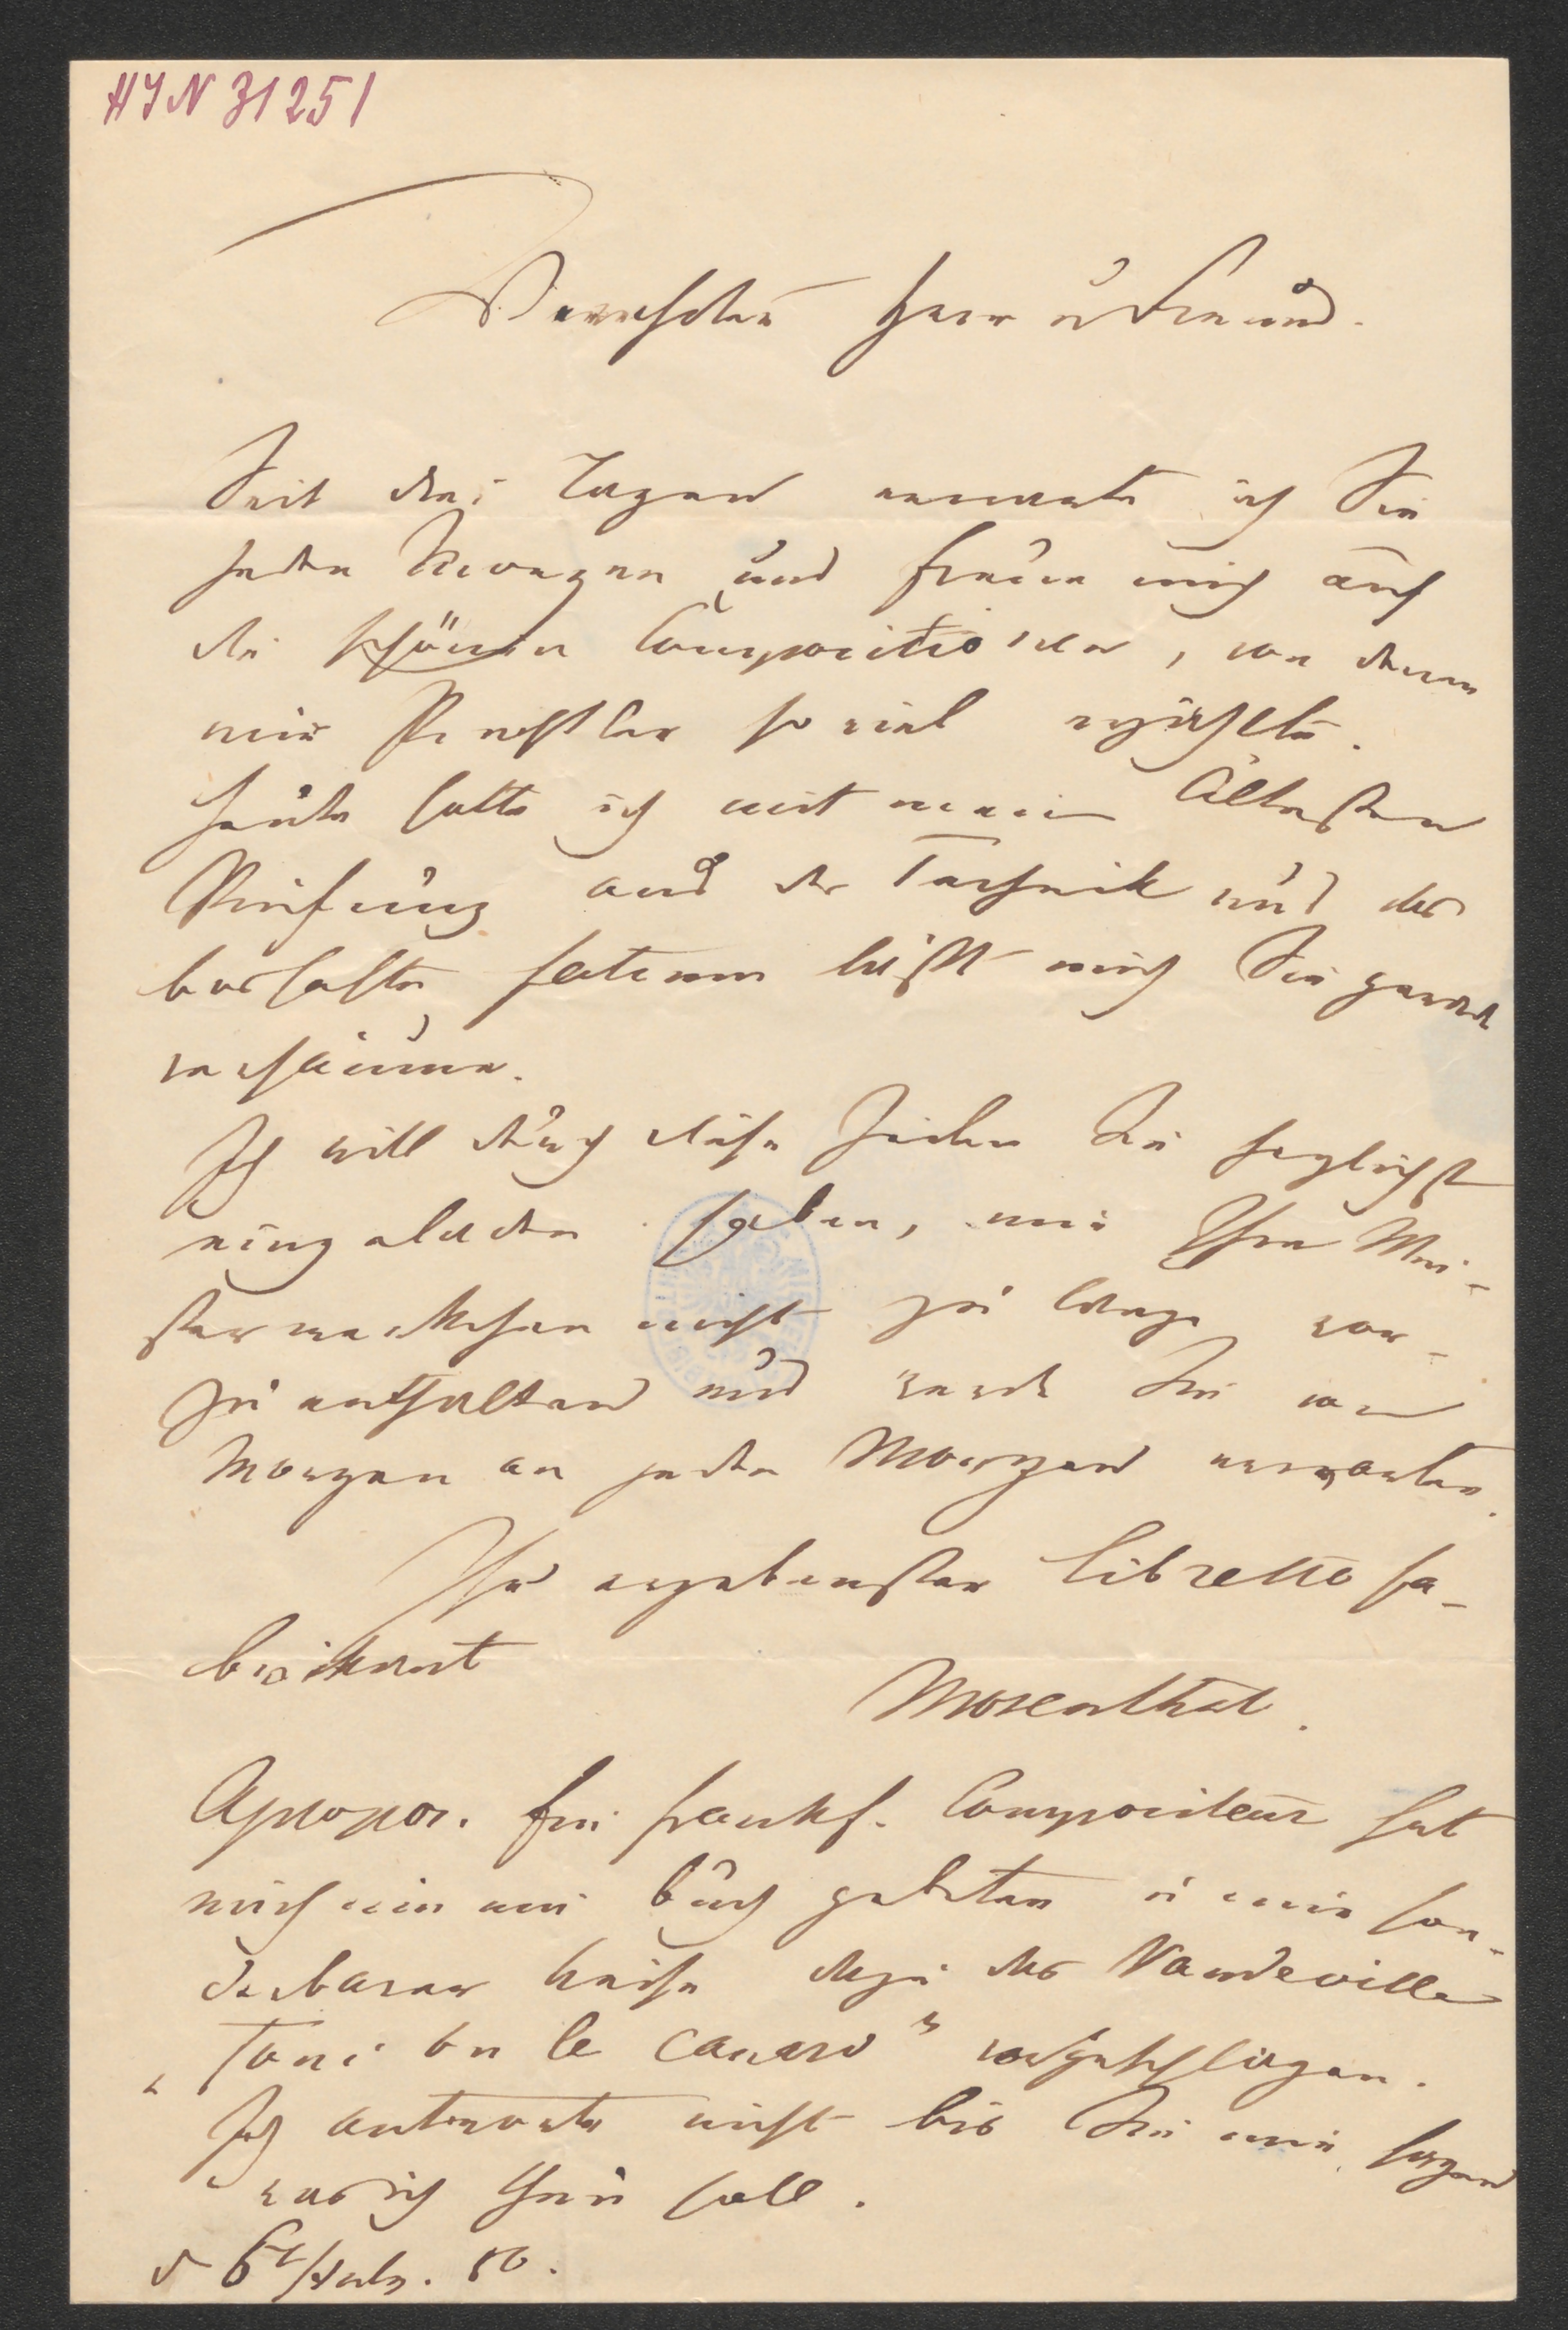 HIN 31251
Verehrter Herr u Freund.
Seit drei Tagen erwarte ich Sie
jeden Morgen und freue mich auf
die schönen Compositionen, von denen
mir so viel erzählte.
Heute hatte ich mit mein Ältesten
Prüfung aus der Technik und das
boshafte fatum läßt mich Sie gerade
versäumen.
Ich will durch diese Zeilen Sie
eingeladen haben, mir Ihre Mei-
sterwerkchen nicht zu lange vor-
zu enthalten und werde Sie von
Morgen an jeden Morgen erwarten.
Ihr ergebenster Libretto fa-
brikant
Mosenthal.
Apropos. Ein frankf. Compositeur hat
mich um ein Buch gebeten u mir son-
derbarer Weise dazu das Vaudeville
„Toni ou le canard" vorgeschlagen.
Ich antworte nicht bis Sie mir sagen
was ich thun soll.
d 6t